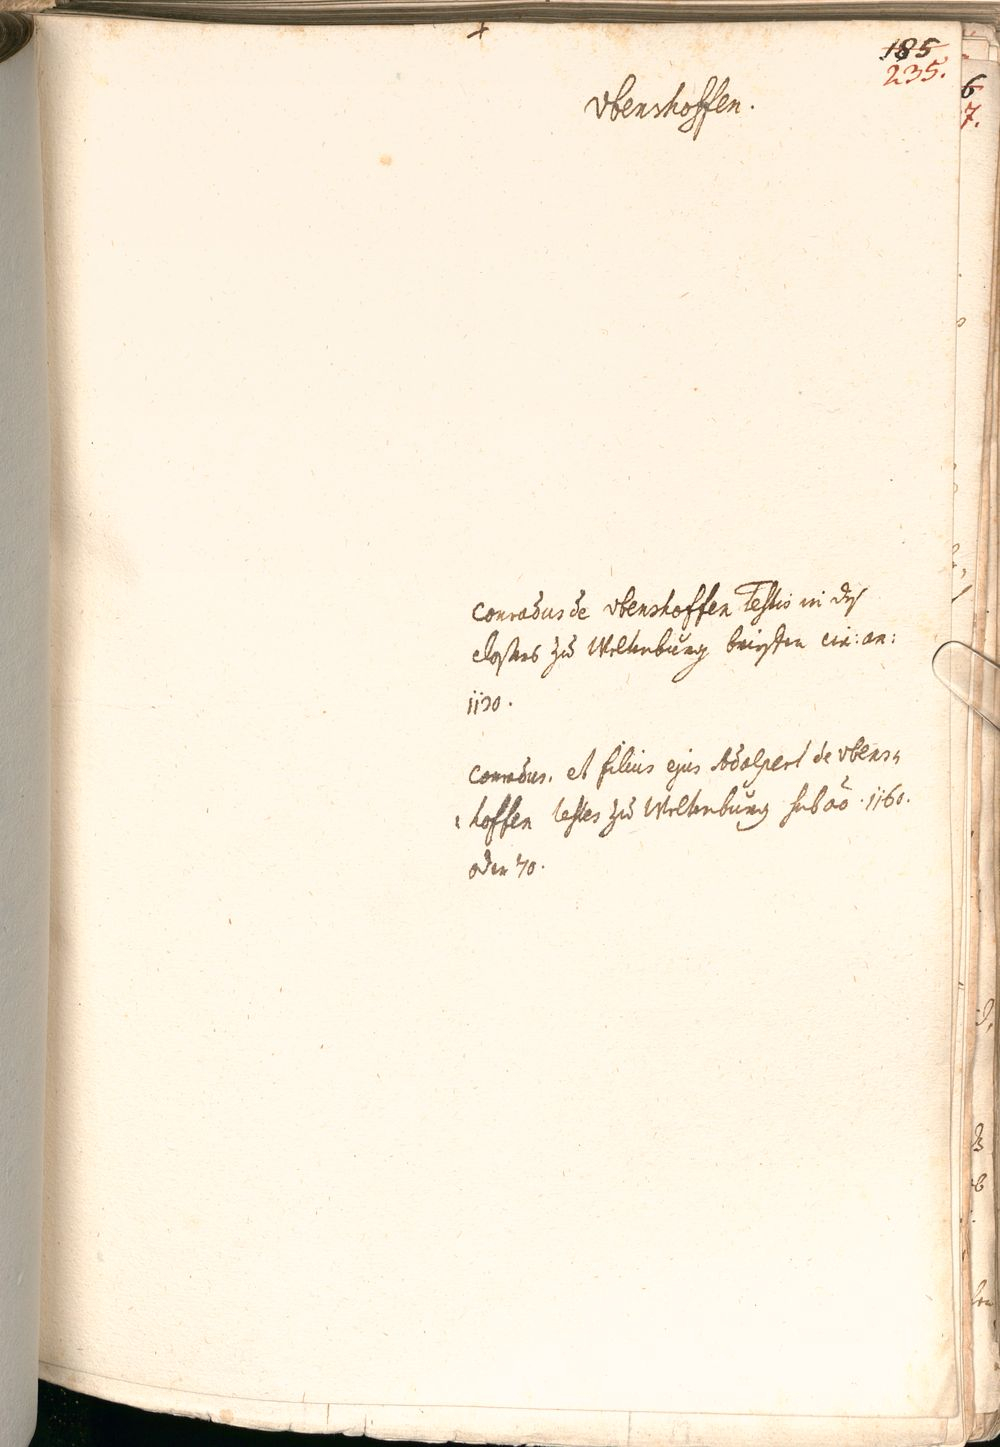 185
235.
Vbenshoffen.
Conradus de Vbenshoffen Testis in deß
closters zu Weltenburg brieffen cir: an:
1130.
Conradus. et filius ejus Adalpert de Vbens,
hoffen testes zu Weltenburg sub ao. 1160.
oder 70.
6
7.